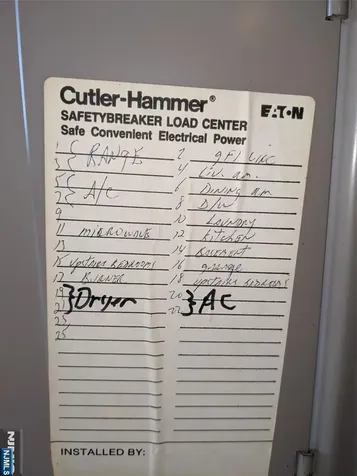 Cutler-Hammer® EATON
SAFETYBREAKER LOAD CENTER
Safe Convenient Electrical Power
1 RANGE 2 GFI LINE
3 4 Liv. rm.
5 A/C 6 Dining rm
7 8 D/W
9 10 LAUNDRY
11 MICROWAVE 12 KITCHEN
13 14 BASEMENT
15 UPSTAIRS BEDROOMS 16 garage
17 BURNER 18 UPSTAIRS BEDROOMS
19 Dryer 20 AC
21 22
23
25
INSTALLED BY:
NJMLS